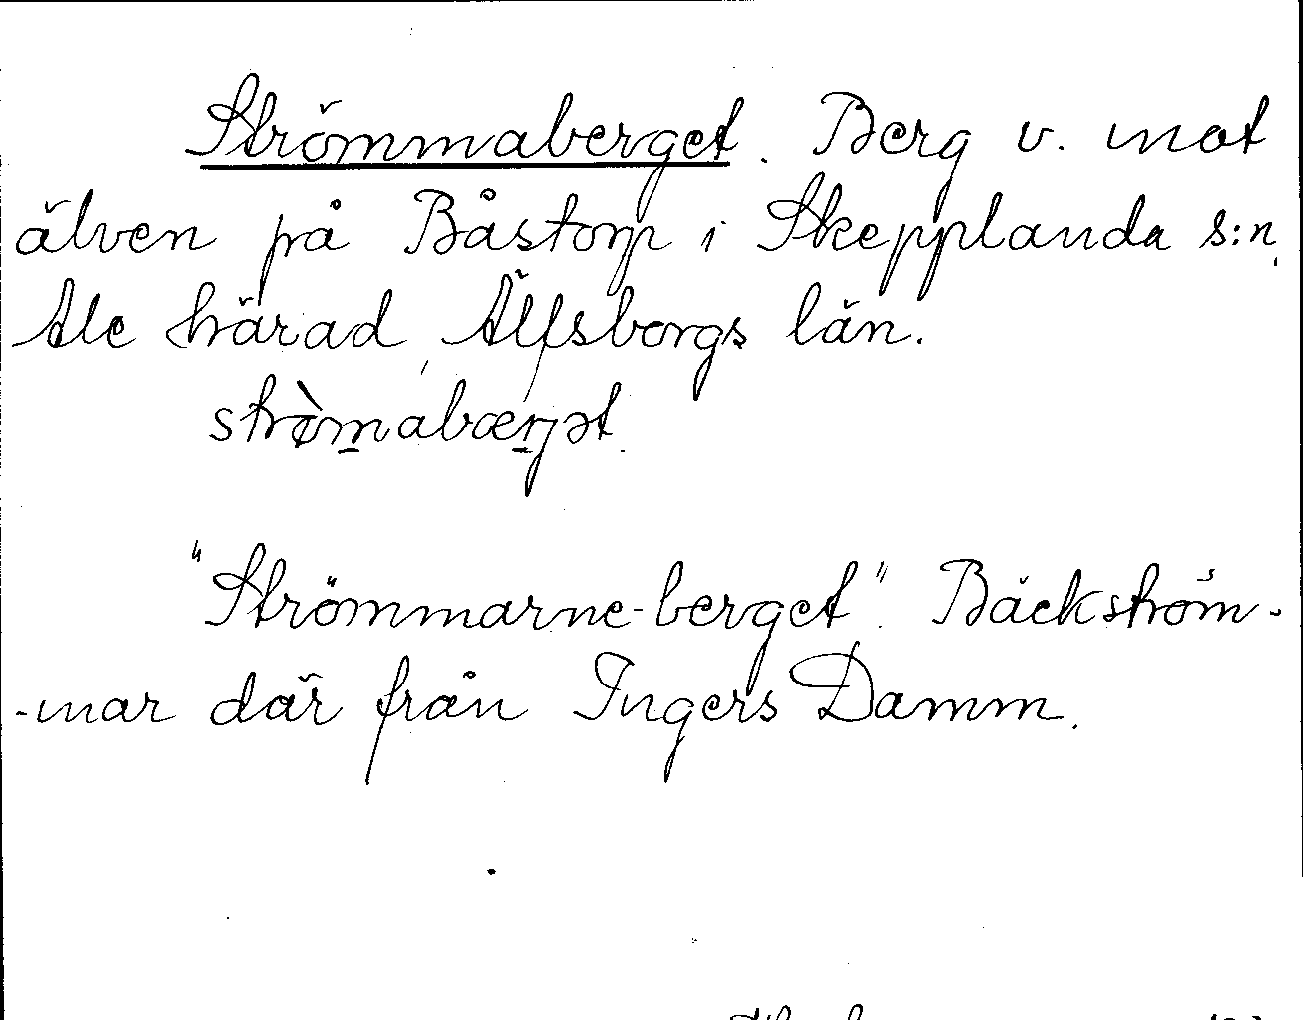 Strömmaberget. Berg v. mot
älven på Båstorp i Skepplanda s:n,
Ale härad, Älfsborgs län.
strø̀m̲abær̲jət.
"Strömmarne-berget". Bäckström-
-mar där från Ingers Damm.